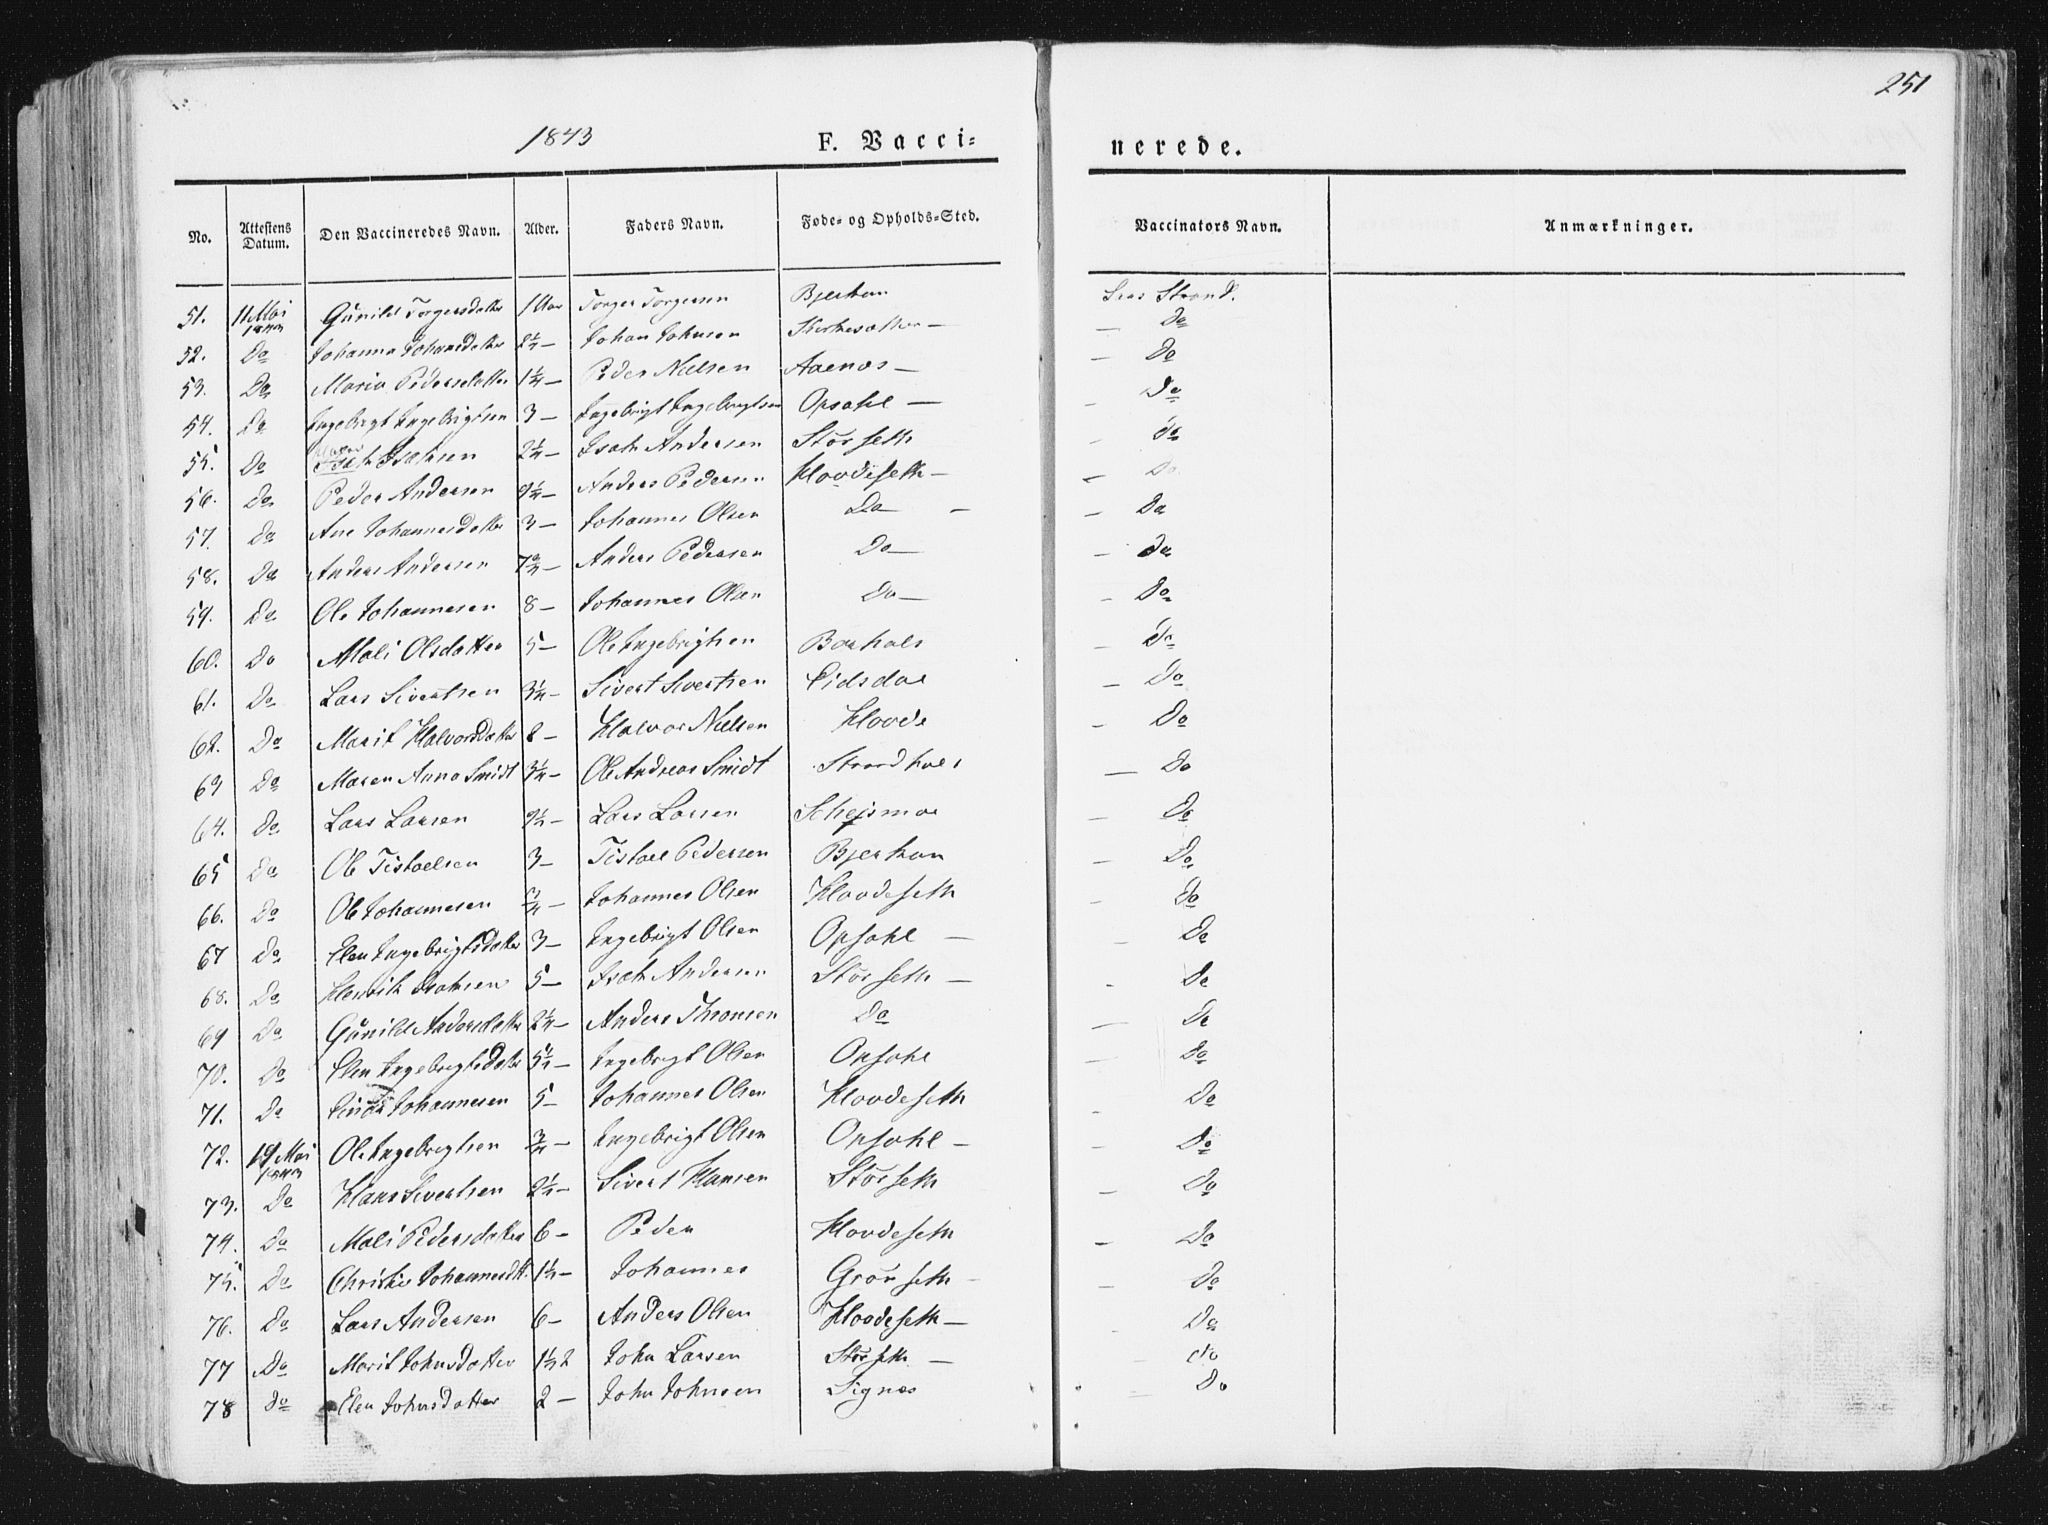 251
1843 F. Vacci-
nerede.
No. Attestens Datum. Den Vaccineredes Navn. Alder. Faders Navn. Føde- og Opholds-Sted. Vaccinators Navn. Anmærkninger.
51. 11 Mai 1843 Gunild Torgersdatter 1 Aar Torger Torgersen Bjerkan Lars Strand.
52. Do Johanna Johansdatter 2 1/4 — Johan Johnsen Kirkesætter — — Do
53. Do Maria Pedersdatter 1 1/4 — Peder Nielsen Aaenæs — — Do
54. Do Ingebrigt Ingebrigtsen 3 — Ingebrigt Ingebrigtsen Opsahl — — Do
55. Do Isak Isaksen 2 1/4 — Isak Andersen Storseth — Do
56. Do Peder Andersen 9 1/4 — Anders Pedersen Hovdeseth — — Do
57. Do Ane Johannesdatter 3 — Johannes Olsen Do — — Do
58. Do Anders Andersen 7 3/4 — Anders Pedersen Do — — Do
59. Do Ole Johannesen 8 — Johannes Olsen Do — — Do
60. Do Mali Olsdatter 5 — Ole Ingebrigtsen Baushals — Do
61. Do Lars Sivertsen 3 1/4 — Sivert Sivertsen Eidsdal — Do
62. Do Marit Halvorsdatter 8 — Halvor Nielsen Hovde — Do
63 Do Maren Anna Smidt 3 1/4 — Ole Andreas Smidt Strandhuel — Do
64. Do Lars Larsen 9 1/2 — Lars Larsen Schejsmoe — Do
65 Do Ole Tistaelsen 3 — Tistael Pedersen Bjerkan — Do
66. Do Ole Johannesen 3/4 — Johannes Olsen Hovdeseth — Do
67 Do Elen Ingebrigtsdatter 3 — Ingebrigt Olsen Opsahl — — Do
68. Do Henrik Isaksen 5 — Isak Andersen Storseth — — Do
69 Do Gunild Andersdatter 2 1/4 — Anders Thomsen Do — Do
70. Do Elen Ingebrigtsdatter 5 1/2 — Ingebrigt Olsen Opsahl — Do
71. Do Johannesen 5 — Johannes Olsen Hovdeseth — Do
72. 19 Mai 1843 Ole Ingebrigtsen 3/4 — Ingebrigt Olsen Opsahl — — Do
73. Do Hans Sivertsen 2 1/2 — Sivert Hansen Storseth — Do
74. Do Mali Pedersdatter 6 — Peder Hovdeseth — Do
75. Do Christie Johannesdtr. 1 1/2 — Johannes Grønseth — — Do
76. Do Lars Andersen 6 — Anders Olsen Hovdeseth — Do
77 Do Marit Johnsdatter 1 1/2 John Larsen Storseth — do
78 do Elen Johnsdatter 2 — John Johnsen Signæs — Do